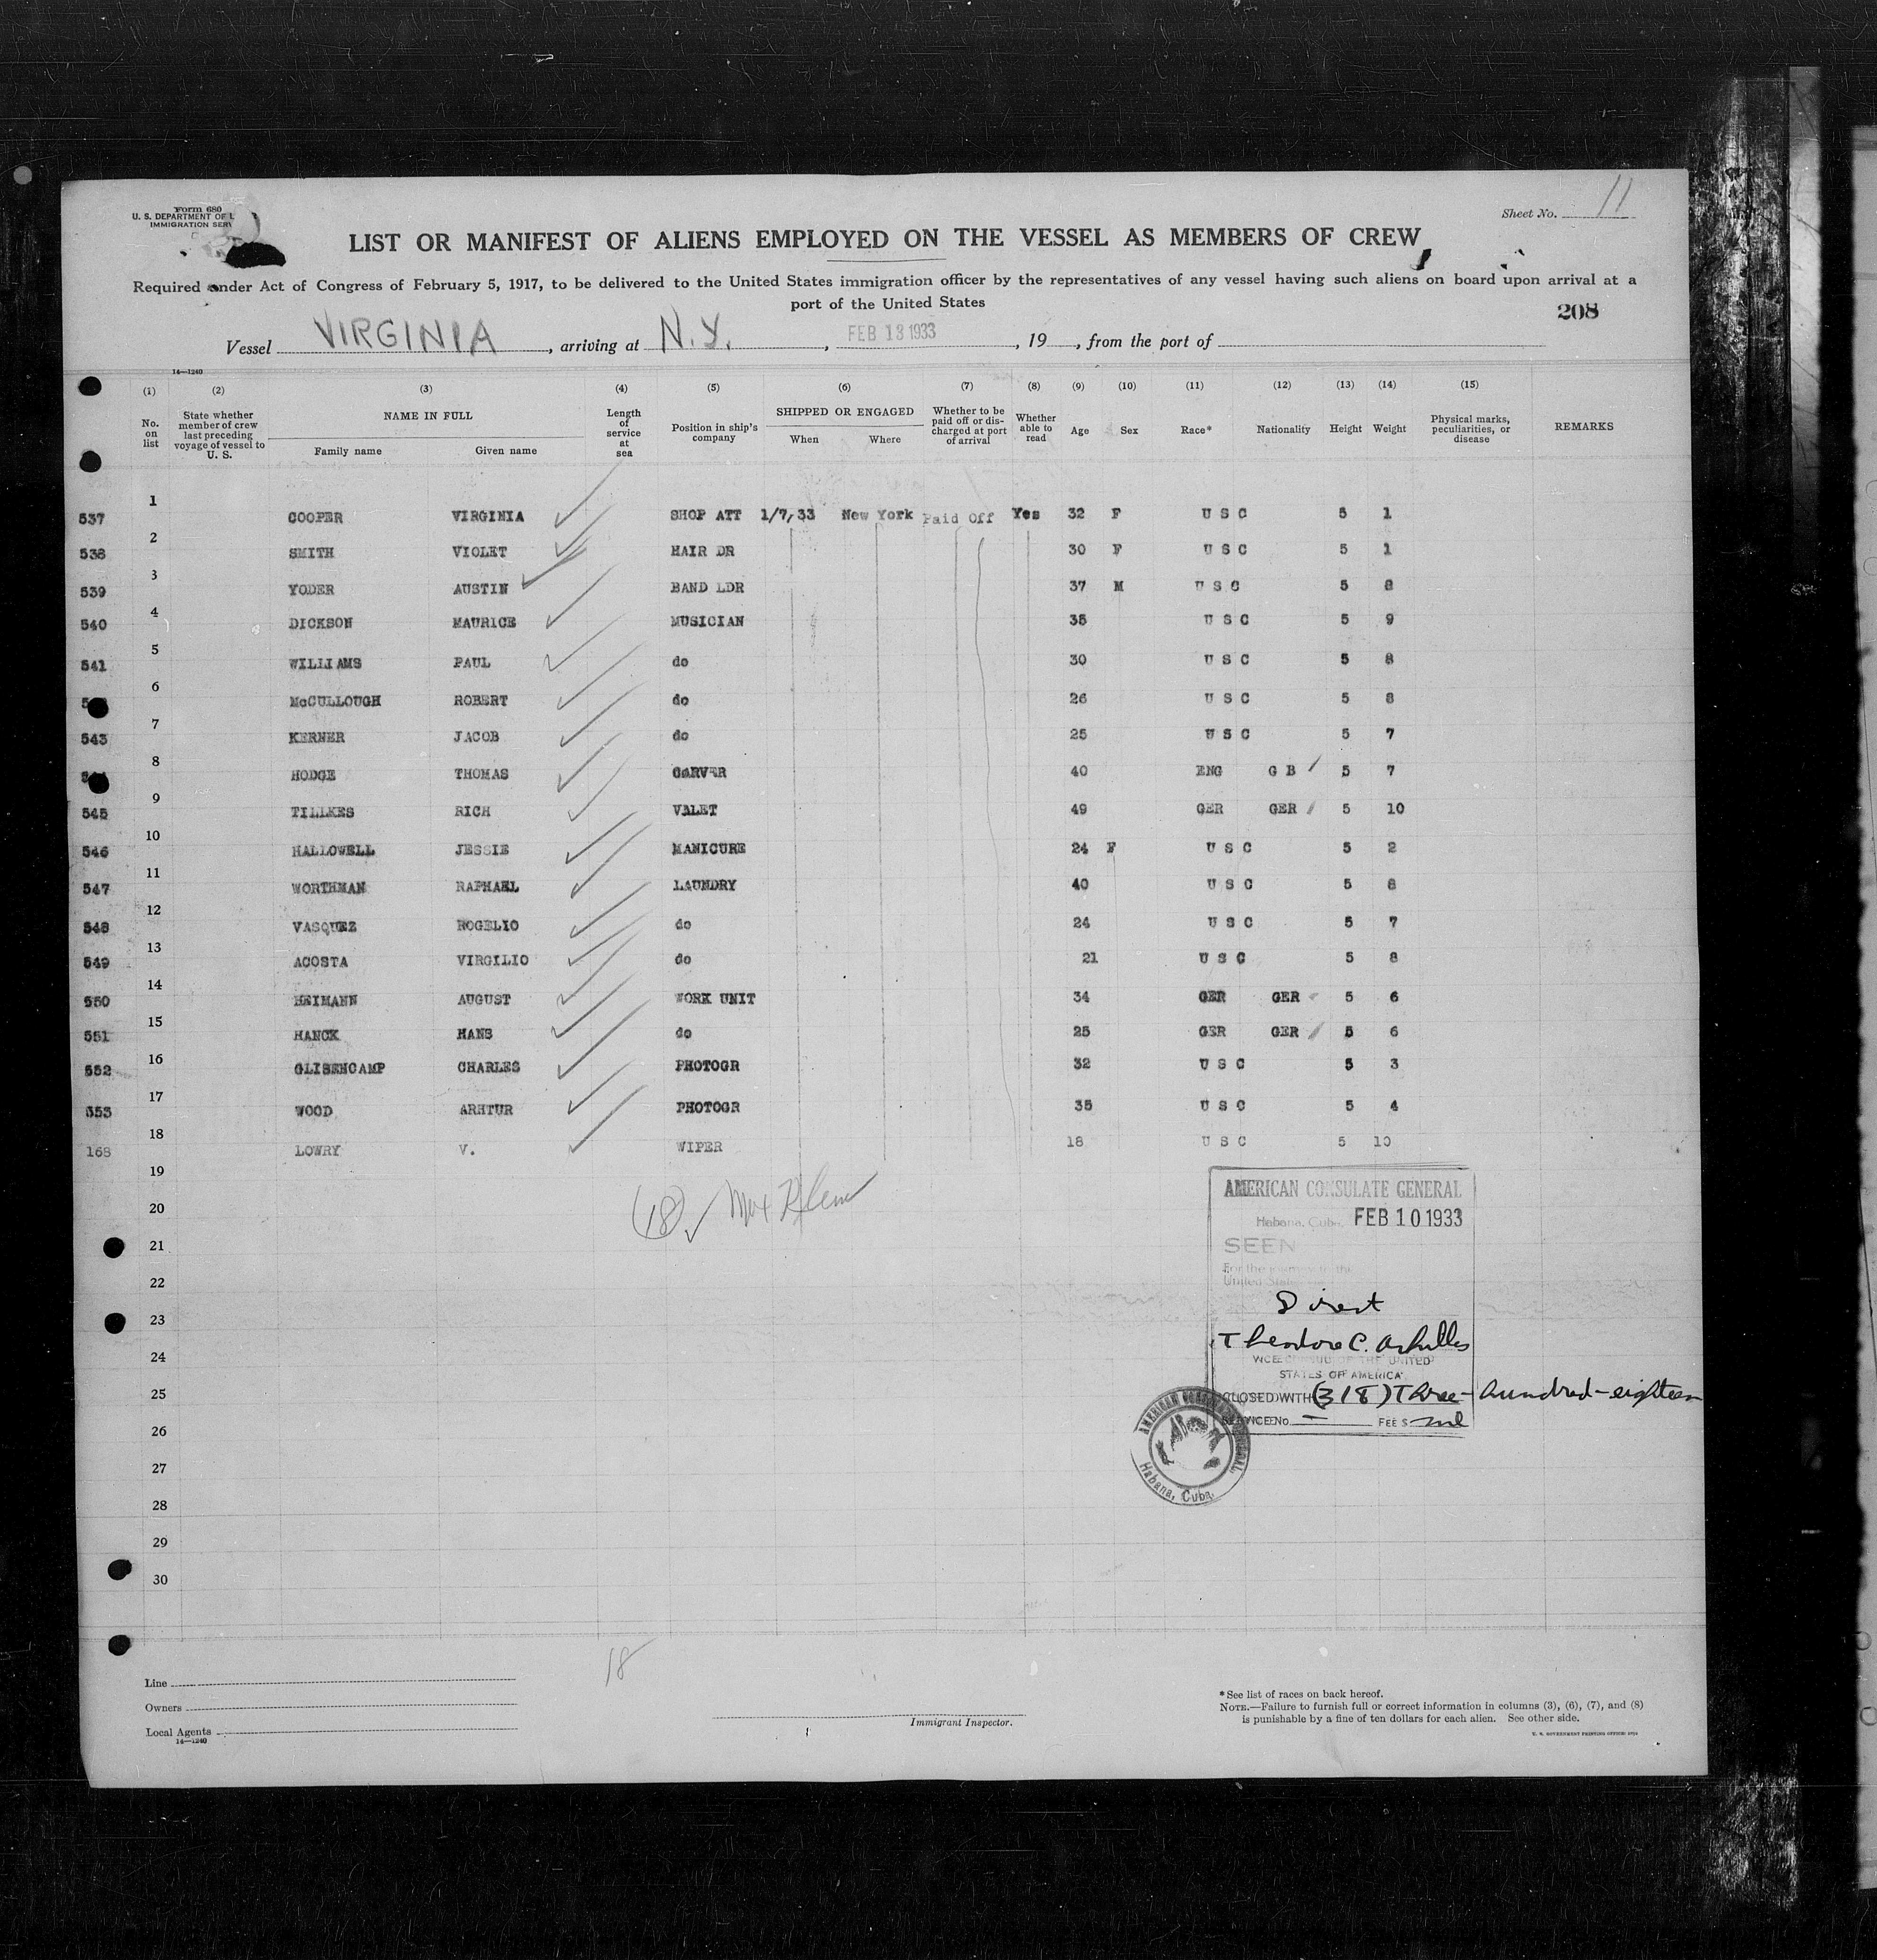 Form 680
U. S. DEPARTMENT OF
IMMIGRATION SERV
Sheet No. 11
LIST OR MANIFEST OF ALIENS EMPLOYED ON THE VESSEL AS MEMBERS OF CREW
Required under Act of Congress of February 5, 1917, to be delivered to the United States immigration officer by the representatives of any vessel having such aliens on board upon arrival at a
port of the United States
208
Vessel VIRGINIA, arriving at N.Y., FEB 13 1933, 19 , from the port of
14—1240
(1) (2) (3) (4) (5) (6) (7) (8) (9) (10) (11) (12) (13) (14) (15)
No. on list State whether member of crew last preceding voyage of vessel to U. S. NAME IN FULL Family name Given name Length of service at sea Position in ship's company SHIPPED OR ENGAGED When Where Whether to be paid off or discharged at port of arrival Whether able to read Age Sex Race* Nationality Height Weight Physical marks, peculiarities, or disease REMARKS
537 1 COOPER VIRGINIA SHOP ATT 1/7/33 New York Paid Off Yes 32 F U S C 5 1
538 2 SMITH VIOLET HAIR DR 30 F U S C 5 1
539 3 YODER AUSTIN BAND LDR 37 M U S C 5 8
540 4 DICKSON MAURICE MUSICIAN 35 U S C 5 9
541 5 WILLIAMS PAUL do 30 U S C 5 8
6 McCULLOUGH ROBERT do 26 U S C 5 8
543 7 KERNER JACOB do 25 U S C 5 7
8 HODGE THOMAS CARVER 40 ENG G B 5 7
545 9 TILLKES RICH VALET 49 GER GER 5 10
546 10 HALLOWELL JESSIE MANICURE 24 F U S C 5 2
547 11 WORTHMAN RAPHAEL LAUNDRY 40 U S C 5 8
548 12 VASQUEZ ROGELIO do 24 U S C 5 7
549 13 ACOSTA VIRGILIO do 21 U S C 5 8
550 14 HEIMANN AUGUST WORK UNIT 34 GER GER 5 6
551 15 HANCK HANS do 25 GER GER 5 6
552 16 GLISENCAMP CHARLES PHOTOGR 32 U S C 5 3
553 17 WOOD ARHTUR PHOTOGR 35 U S C 5 4
168 18 LOWRY V. WIPER 18 U S C 5 10
19
20
21
22
23
24
25
26
27
28
29
30
(18)
AMERICAN CONSULATE GENERAL
Habana, Cuba. FEB 10 1933
SEEN
For the journey to the
United States
Direct
Theodore C. Achilles
VICE CONSUL OF THE UNITED
STATES OF AMERICA
CLOSED WITH (318) Three-hundred-eighteen
SERVICE No. — FEE $ nil
AMERICAN CONSULATE GENERAL
Habana, Cuba.
18
Line
Owners
Local Agents
14—1240
Immigrant Inspector.
*See list of races on back hereof.
NOTE.—Failure to furnish full or correct information in columns (3), (6), (7), and (8)
is punishable by a fine of ten dollars for each alien. See other side.